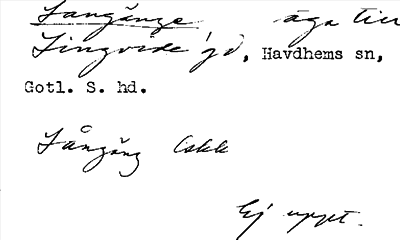 Langänge äga till
Lingvide gd, Havdhems sn,
Gotl. S. hd.
Långäng
Ej uppt.